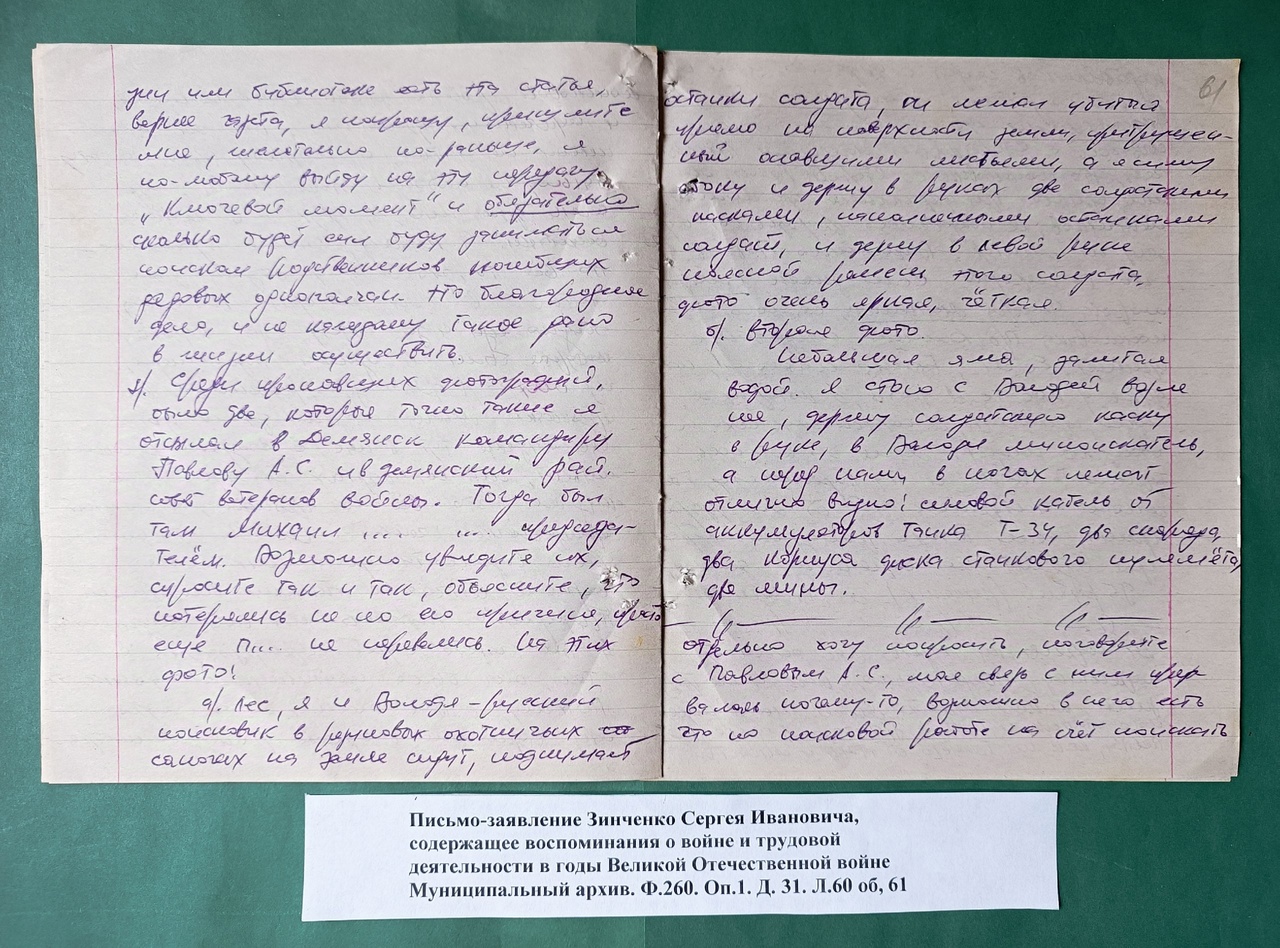 зии или библиотеке есть эта статья,
вернее газета, я попрошу, пришлите
мне, желательно по-раньше, и
по-любому выйду на эту передачу
„Ключевой момент" и обязательно
сколько будет сил буду заниматься
поиском родственников погибших
дедовых однополчан. Это благородное
дело, и не каждому такое дано
в жизни осуществить.
Среди пропавших фотографий,
было две, которые точно такие я
отсылал в Демянск командиру
Павлову А.С. и в демянский рай.
совет ветеранов войны. Тогда был
там Михаил .... ... председа-
телем. Возможно увидите их,
спросите так и так, объясните, что
потерялись не по его причине, просто
ещё п.... не перевелись. На этих
фото!
а). Лес, я и Володя – русский
поисковик в резиновых охотничьих
сапогах на земле сидит, поднимает
61
останки солдата, он лежал убитый
прямо на поверхности земли, притрушен-
ный опавшими листьями, а я сижу
сбоку и держу в руках две солдатскими
касками, наполненными останками
солдат, и держу в левой руке
поясной ремень этого солдата,
фото очень яркая, чёткая.
б). второе фото.
Небольшая яма, залитая
водой. Я стою с Володей возле
неё, держу солдатскую каску
в руке, в Володи миноискатель,
а перед нами в ногах лежат
отлично видно! силовой кабель от
аккумуляторов танка Т-34, два снаряда,
два корпуса диска станкового пулемёта,
две мины.
–//– –//– –//–
отдельно хочу попросить, поговорите
с Павловым А.С., моя связь с ним прер
валась почему-то, возможно в него есть
что по поисковой работе на счёт поискать
Письмо-заявление Зинченко Сергея Ивановича,
содержащее воспоминания о войне и трудовой
деятельности в годы Великой Отечественной войне
Муниципальный архив. Ф.260. Оп.1. Д. 31. Л.60 об, 61